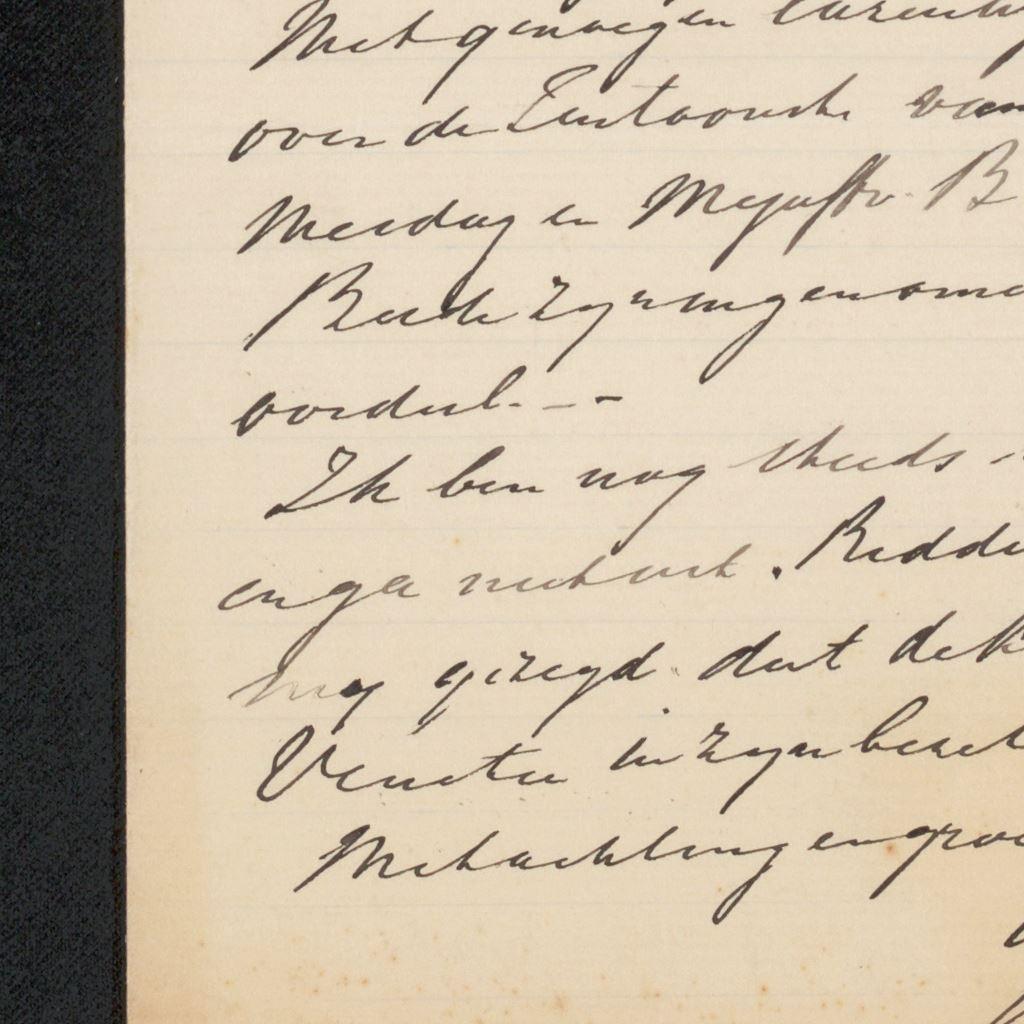 Met genoegen
over de Tentoonst. van
Meerdag en Mejuffr. B
Beide zyn ingenome
oordeel. - -
Ik ben nog steeds
en ga niet uit. Redde
my gezegd dat de K
Venetie in zyn bezit
Met achting en groe